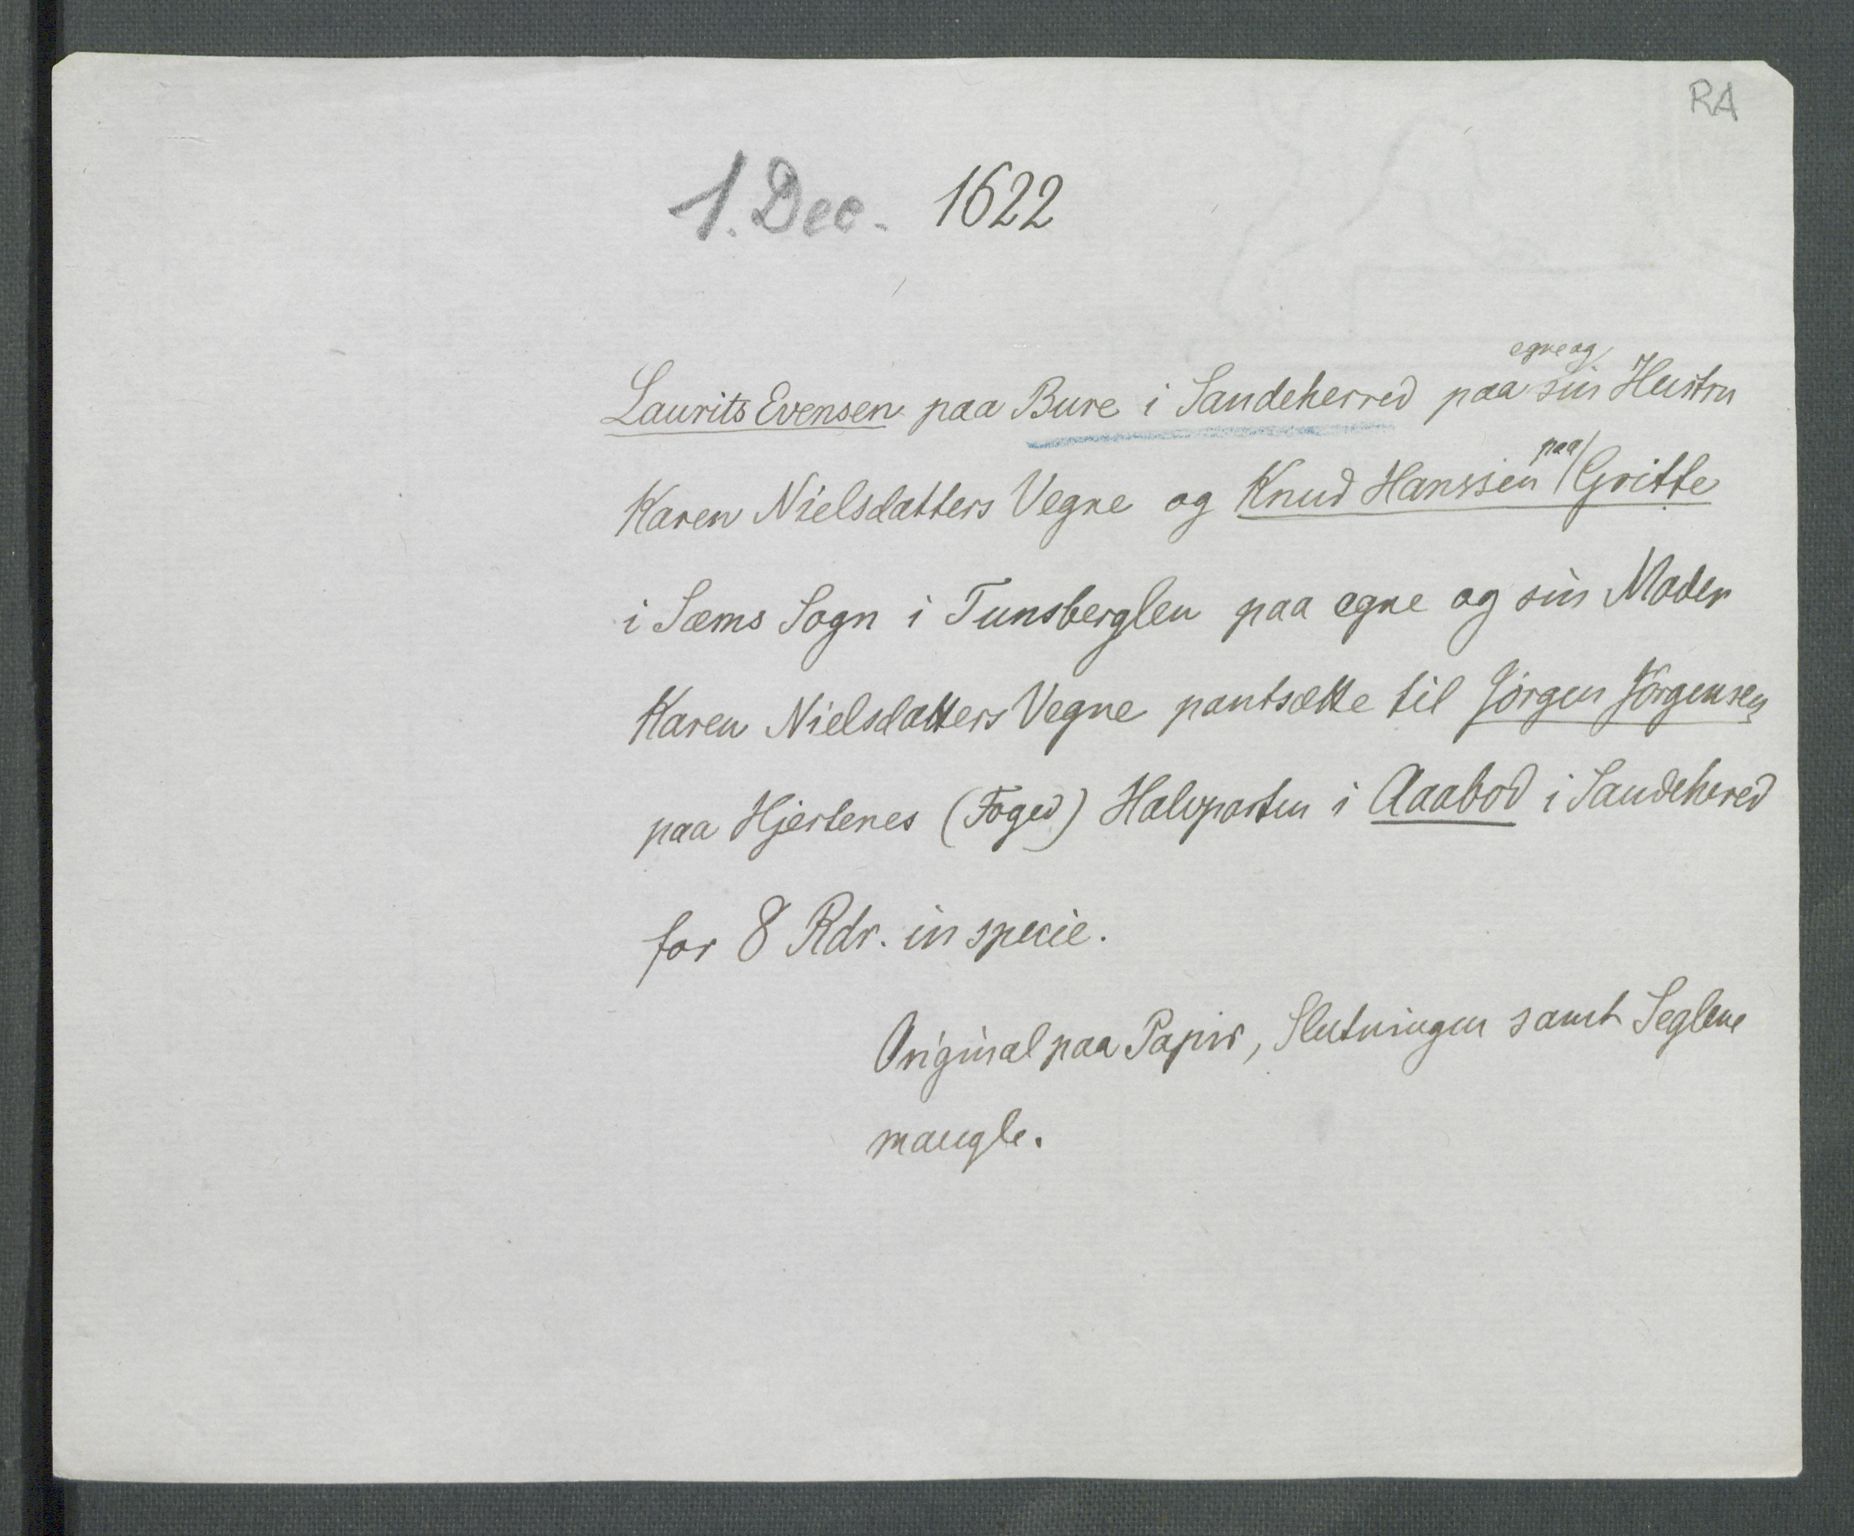 RA
1. Dec. 1622
Laurits Evensen paa Bure i Sandeherred paa egne og sin Hustru
Karen Nielsdatters Vegne og Knud Hanssen paa Gritte
i Sems Sogn i Tunsberglen paa egne og sin Moder
Karen Nielsdatters Vegne pantsætte til Jörgen Jörgensen
paa Hjertenes (Foged) Halvparten i Aaabod i Sandehered
for 8 Rdr. in specie.
Original paa Papir, Slutningen samt Seglene
mangle.